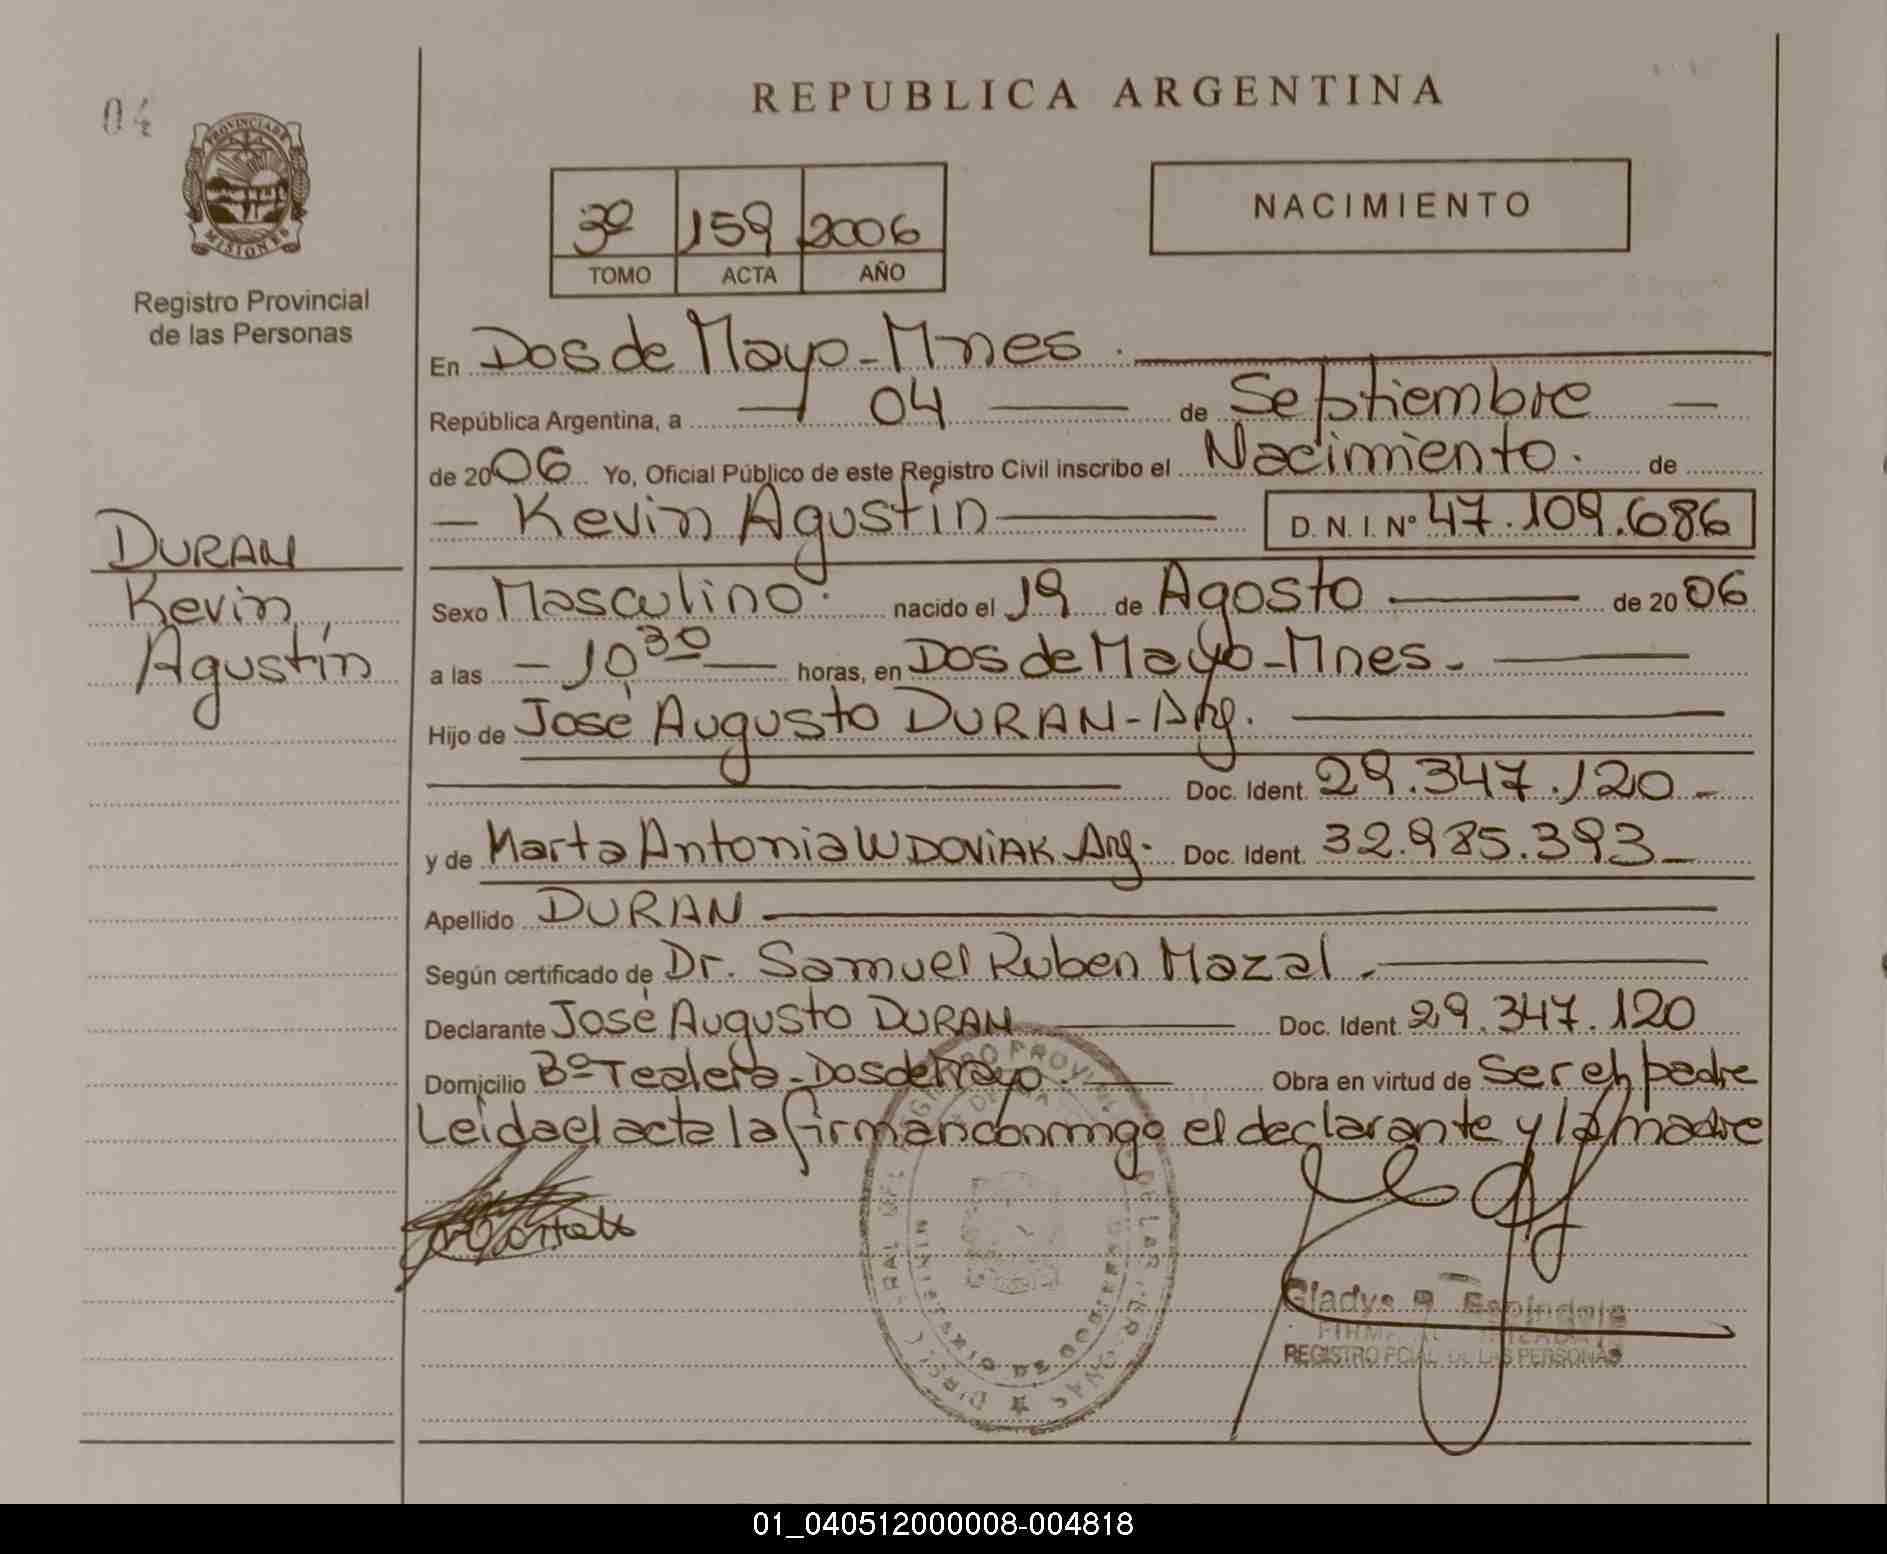 04
PROVINCIA DE
MISIONES
Registro Provincial
de las Personas
DURAN
Kevin
Agustín
REPUBLICA ARGENTINA
3º 159 2006
TOMO ACTA AÑO
NACIMIENTO
En Dos de Mayo - Mnes.
República Argentina, a 04 de Septiembre
de 2006 Yo, Oficial Público de este Registro Civil inscribo el Nacimiento. de
Kevin Agustín D. N. I. Nº 47.109.686
Sexo Masculino. nacido el 19 de Agosto de 2006
a las 10 30 horas, en Dos de Mayo - Mnes.
Hijo de José Augusto DURAN - Arg.
Doc. Ident. 29.347.120
y de Marta Antonia WDOVIAK Arg. Doc. Ident. 32.985.393
Apellido DURAN
Según certificado de Dr. Samuel Ruben Mazal
Declarante José Augusto DURAN Doc. Ident. 29.347.120
Domicilio Bº Tealera - Dos de Mayo. Obra en virtud de Ser el padre
Leida el acta la firman conmigo el declarante y la madre
Gladys Espindola
REGISTRO PCIAL DE LAS PERSONAS
01_040512000008-004818